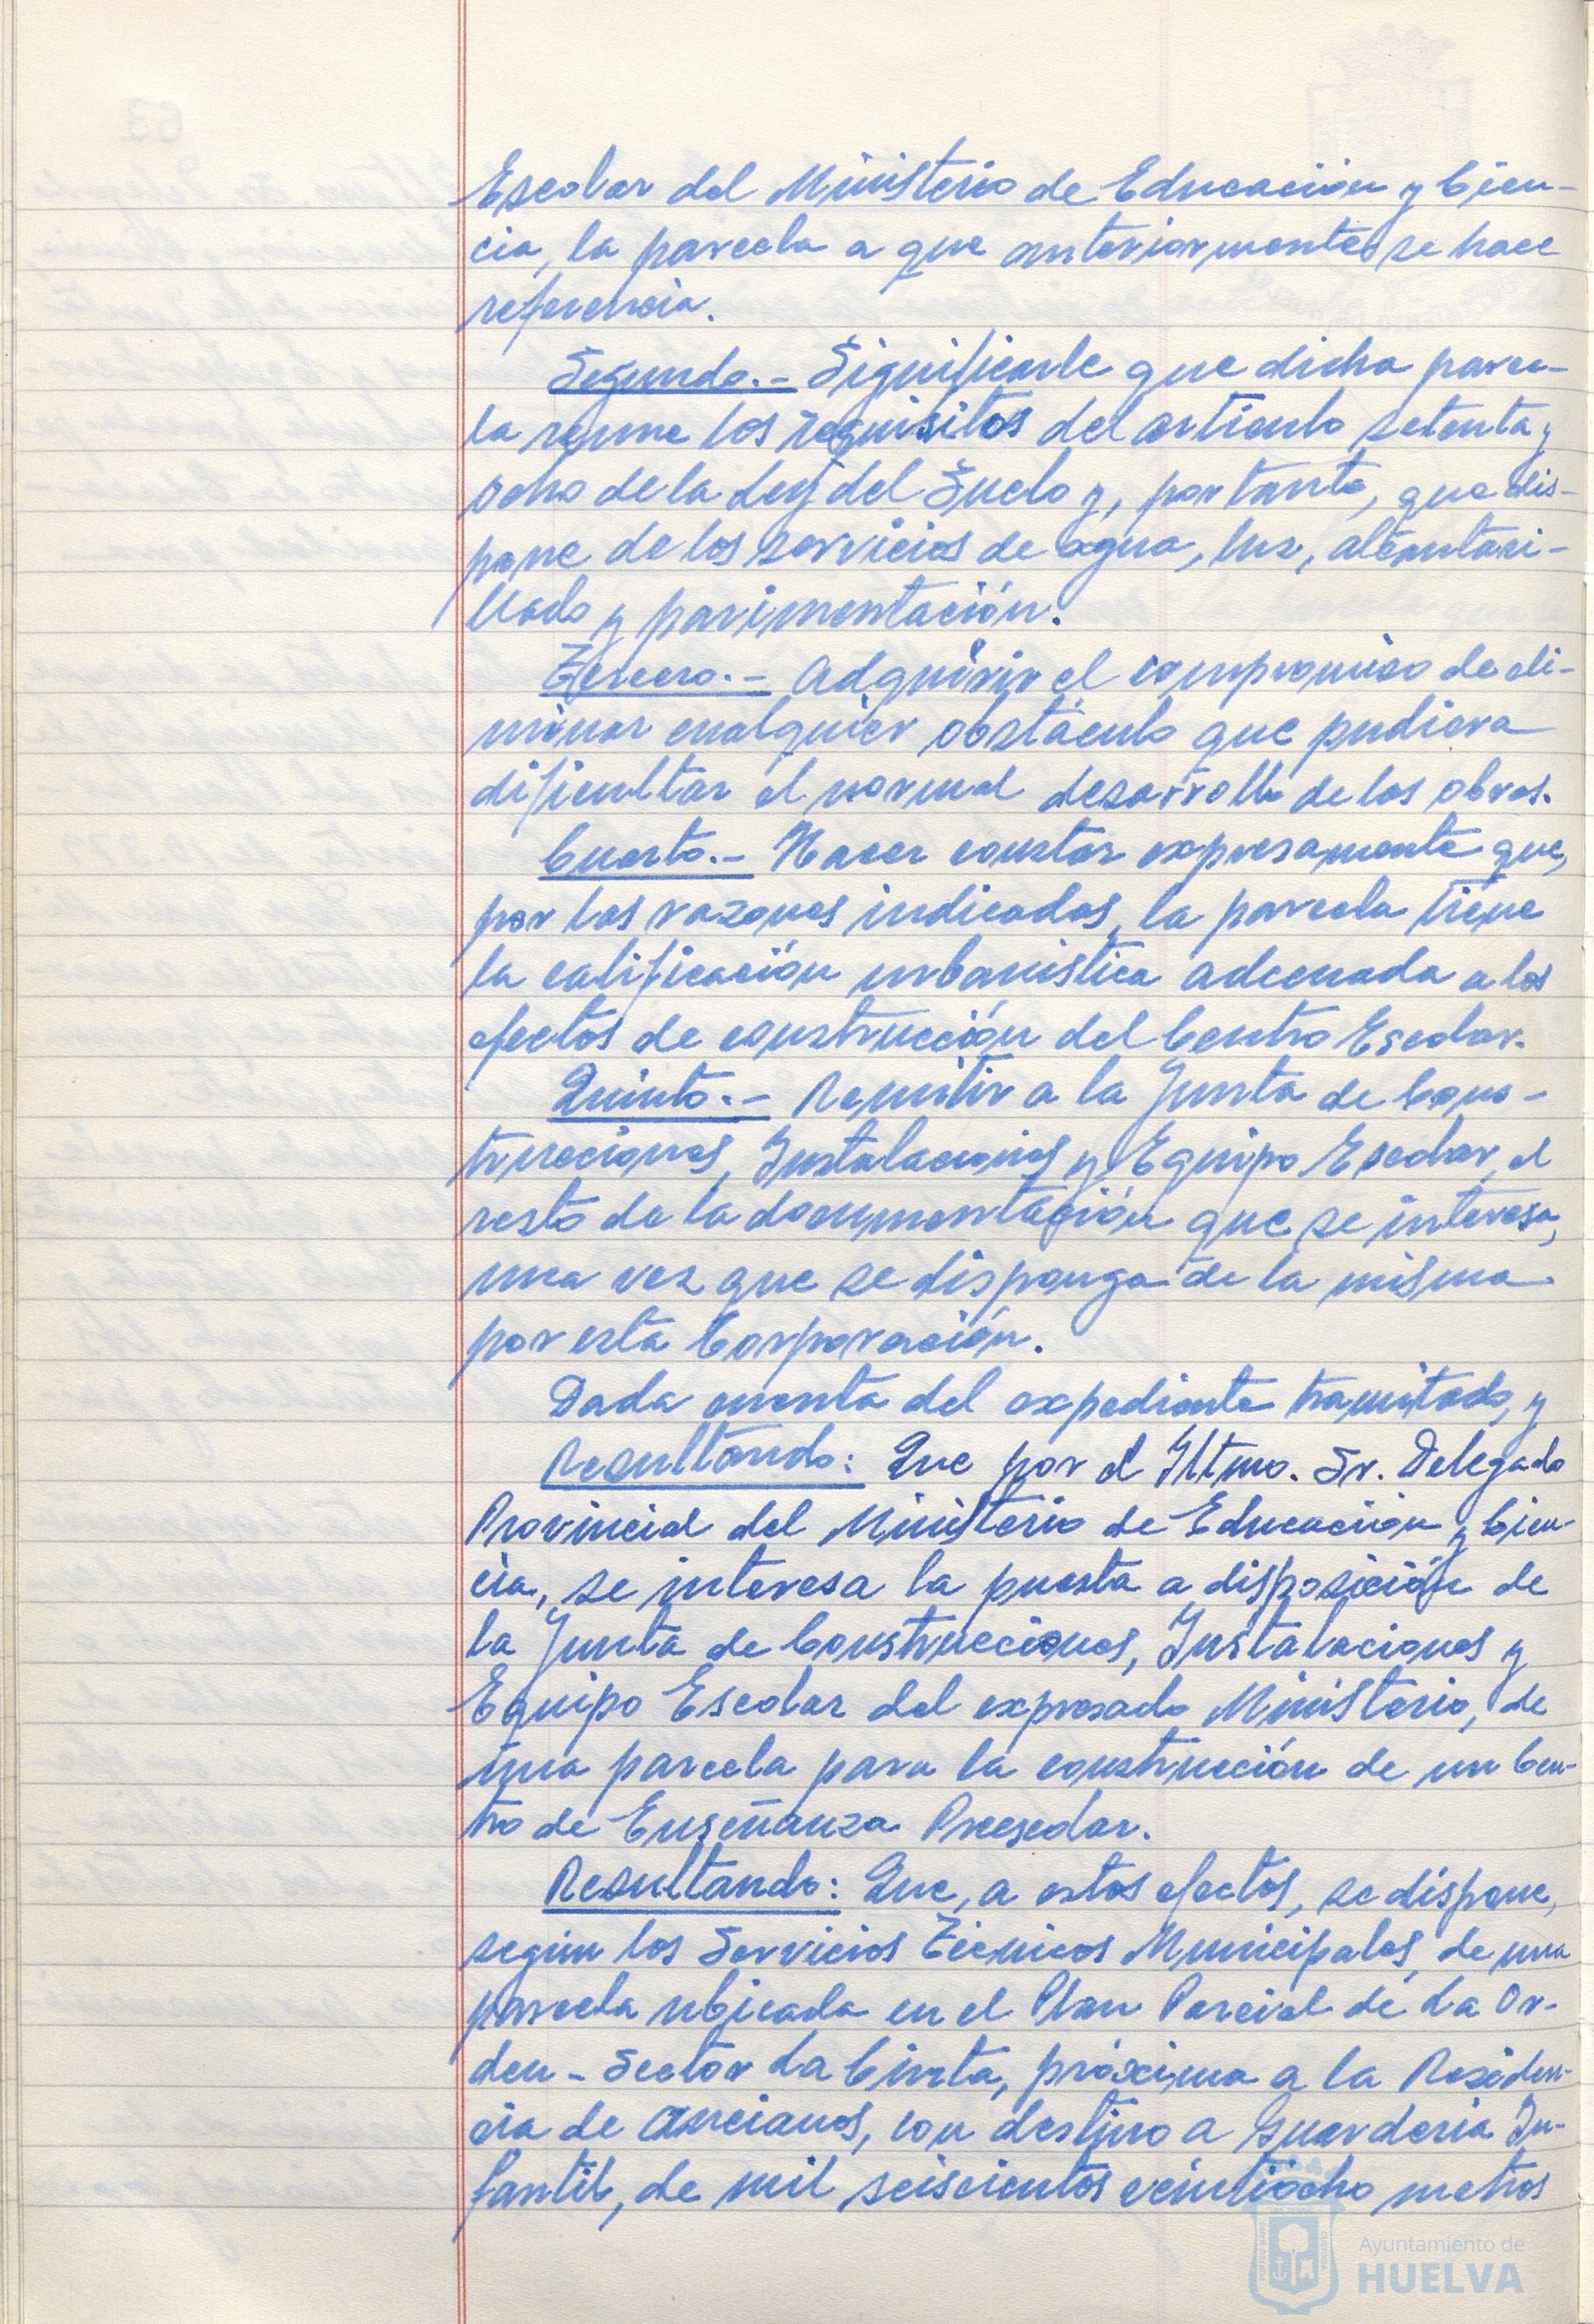 Escolar del Ministerio de Educación y Cien-
cia, la parcela a que anteriormente se hace
referencia.
Segundo.- Significarle que dicha parce-
la reune los requisitos del artículo setenta y
ocho de la Ley del Suelo y, por tanto, que dis-
pone de los servicios de agua, luz, alcantari-
llado y pavimentación.
Tercero.- Adquirir el compromiso de eli-
minar cualquier obstáculo que pudiera
dificultar el normal desarrollo de las obras.
Cuarto.- Hacer constar expresamente que,
por las razones indicadas, la parcela tiene
la calificación urbanistica adecuada a los
efectos de construcción del Centro Escolar.
Quinto.- Remitir a la Junta de Cons-
trucciones, Instalaciones y Equipo Escolar, el
resto de la documentación que se interesa,
una vez que se disponga de la misma
por esta Corporación.
Dada cuenta del expediente tramitado, y
Resultando: Que por el Iltmo. Sr. Delegado
Provincial del Ministerio de Educación y Cien-
cia, se interesa la puesta a disposición de
la Junta de Construcciones, Instalaciones y
Equipo Escolar del expresado Ministerio, de
una parcela para la construcción de un Cen-
tro de Enseñanza Preescolar.
Resultando: Que, a estos efectos, se dispone,
según los Servicios Técnicos Municipales, de una
parcela ubicada en el Plan Parcial de La Or-
den - Sector La Cinta, próxima a la Residen-
cia de Ancianos, con destino a Guarderia In-
fantil, de mil seiscientos veintiocho metros
Ayuntamiento de
HUELVA